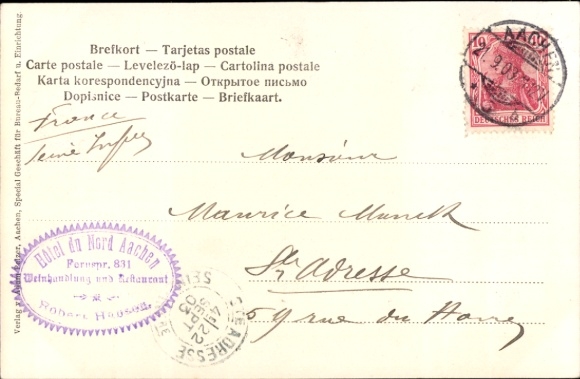 Brefkort — Tarjetas postale
Carte postale — Levelező-lap — Cartolina postale
Karta korespondencyjna — Открытое письмо
Dopisnice — Postkarte — Briefkaart.
AACHEN
10
DEUTSCHES REICH
France
Seine Infre
Monsieur
Maurice Munck
Ste Adresse
59 rue du Havre
Hôtel du Nord Aachen
Fernspr. 831
Weinhandlung und Restaurant
Robert Hansen
STE ADRESSE
SEINE
4E
22
SEPT
03
Aachen, Special Geschäft für Bureau-Bedarf u. Einrichtung.
Verlag v.